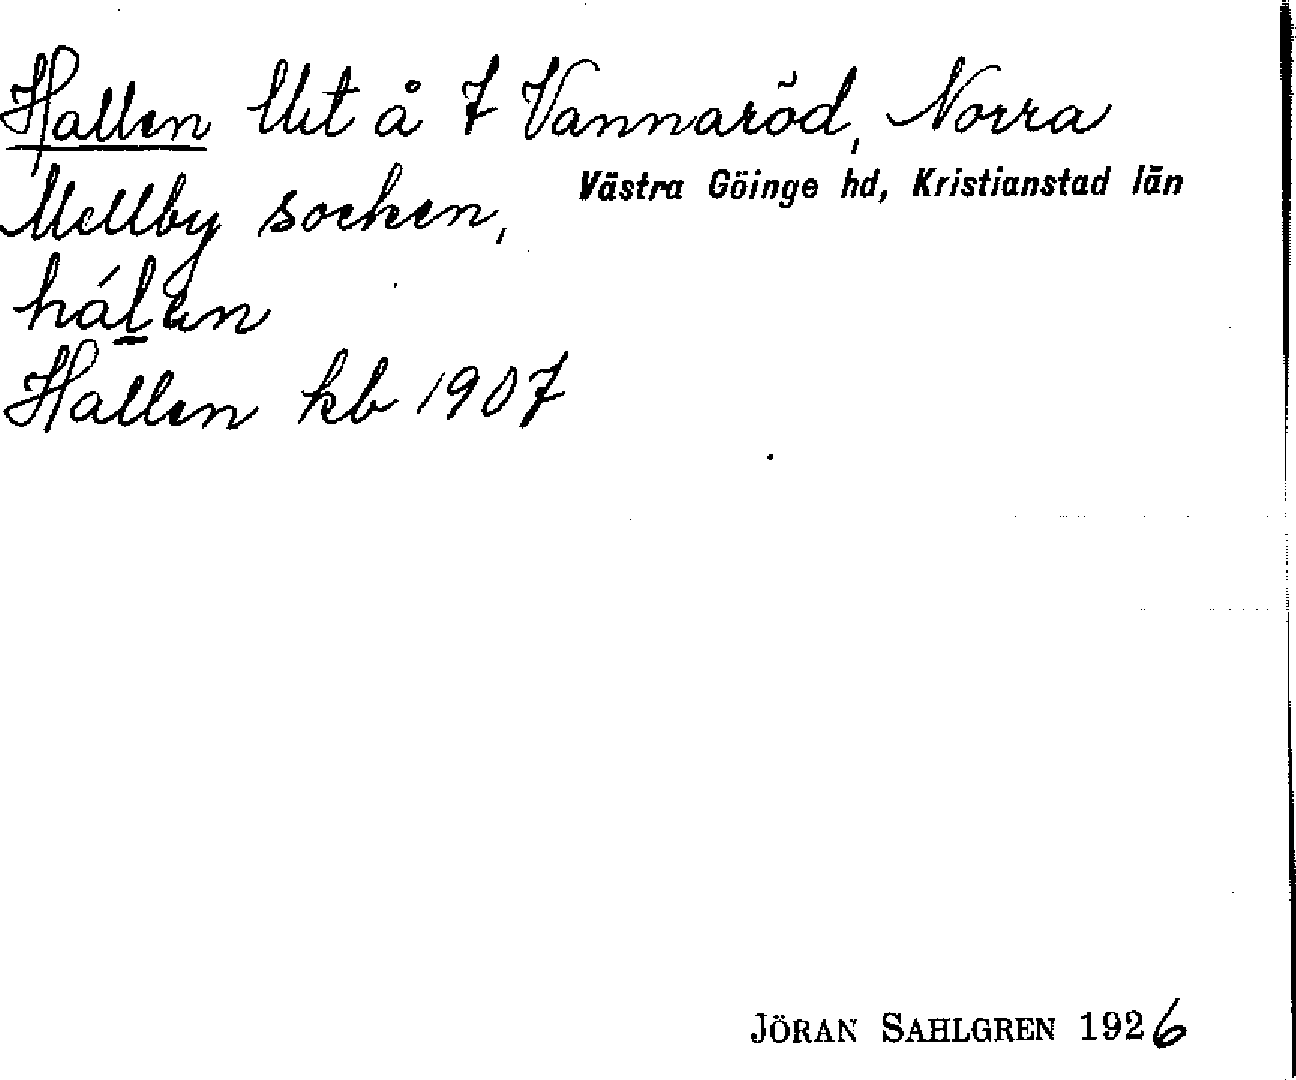 Hallen Ut å 7 Vannaröd, Norra
Västra Göinge hd, Kristianstad län
Mellby socken,
hálan
Hallen kb 1907
JÖRAN SAHLGREN 1926